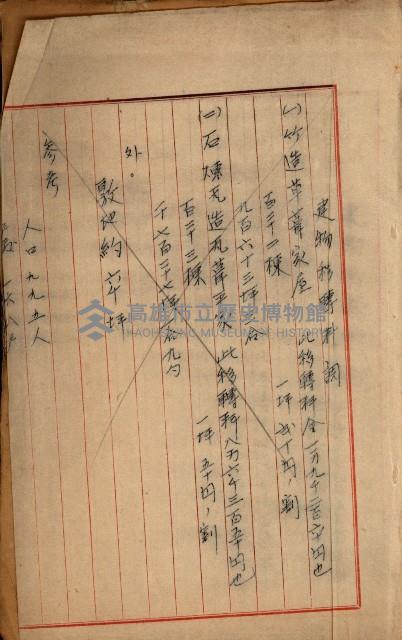 建物移轉料調
(一)竹造草葺家屋 此移轉料金一万九千二百六十円也
百三十二棟 一坪 弐十円、割
九百六十三坪
(二)石煉瓦造瓦葺平家 此移轉料八万六千三百五十円也
百三十三棟 一坪 五十円、割
千七百二十七坪 九勺
外。
敷地約六千坪
参考
人口九九五人
高雄市立歷史博物館
KAOHSIUNG MUSEUM OF HISTORY